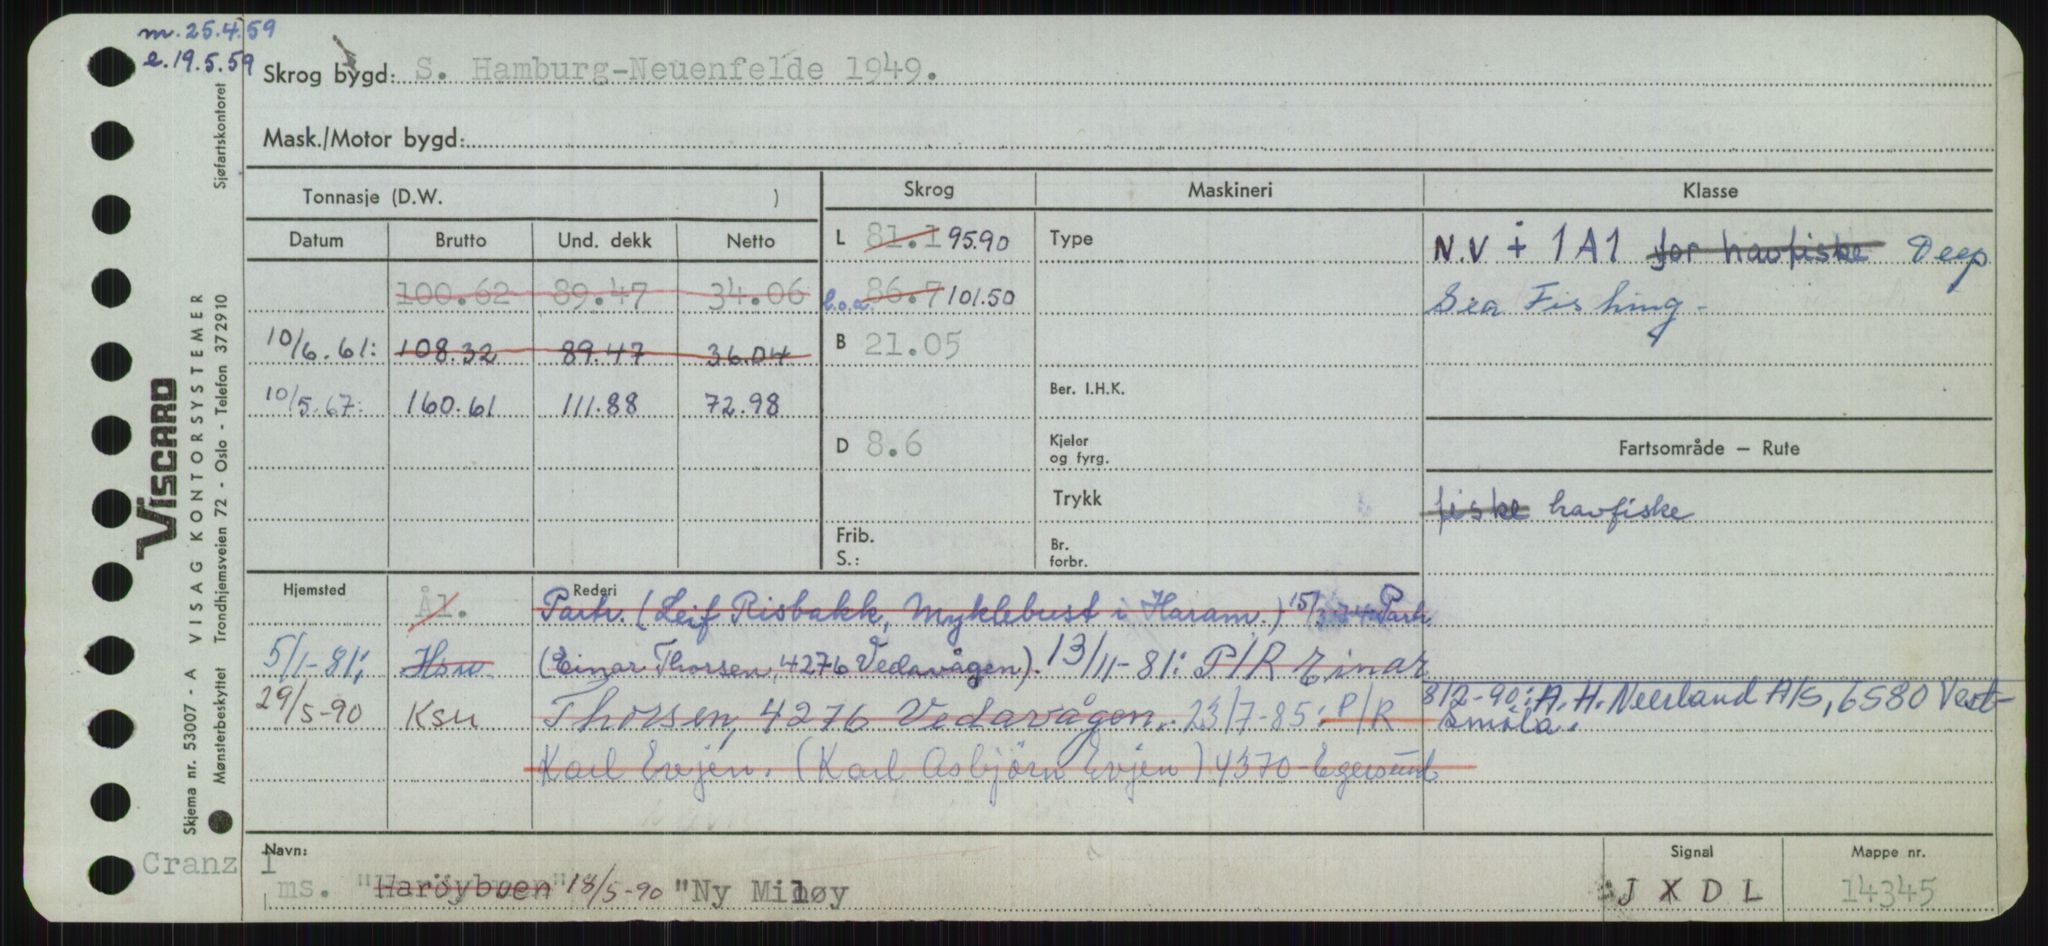 m. 25.4.59
e. 19.5.59
Skrog bygd: S. Hamburg-Neuenfelde 1949.
Mask./Motor bygd:
Tonnasje (D.W. )
Skrog
Maskineri
Klasse
Datum Brutto Und. dekk Netto
L 81.1 95.90
Type
N.V + 1A1 for havfiske Deep
100.62 89.47 34.06
l.o.a. 86.7 101.50
Sea Fishing -
10/6.61: 108.32 89.47 36.04
B 21.05
10/5.67: 160.61 111.88 72.98
Ber. I.H.K.
D 8.6
Kjeler
og fyrg.
Fartsområde – Rute
Trykk
fiske havfiske
Frib.
S.:
Br.
forbr.
Hjemsted Ål. Rederi Partr. (Leif Risbakk, Myklebust i Haram.) 15/3.74 Partr.
5/1-81: Hsw (Einar Thorsen, 4276 Vedavågen). 13/11-81: P/R Einar
29/5-90 Ksu Thorsen, 4276 Vedavågen. 23/7-85: P/R
8/2-90: A. H. Neerland A/S, 6580 Vest-
Smöla.
Karl Evjen. (Karl Asbjörn Evjen) 4370-Egersund
Navn:
Cranz I
ms. "Haröybuen" 18/5-90 "Ny Miløy
Signal
JXDL
Mappe nr.
14345
Sjøfartskontoret
VISCARD
Skjema nr. 53007 - A VISAG KONTORSYSTEMER
Mønsterbeskyttet Trondhjemsveien 72 - Oslo - Telefon 372910